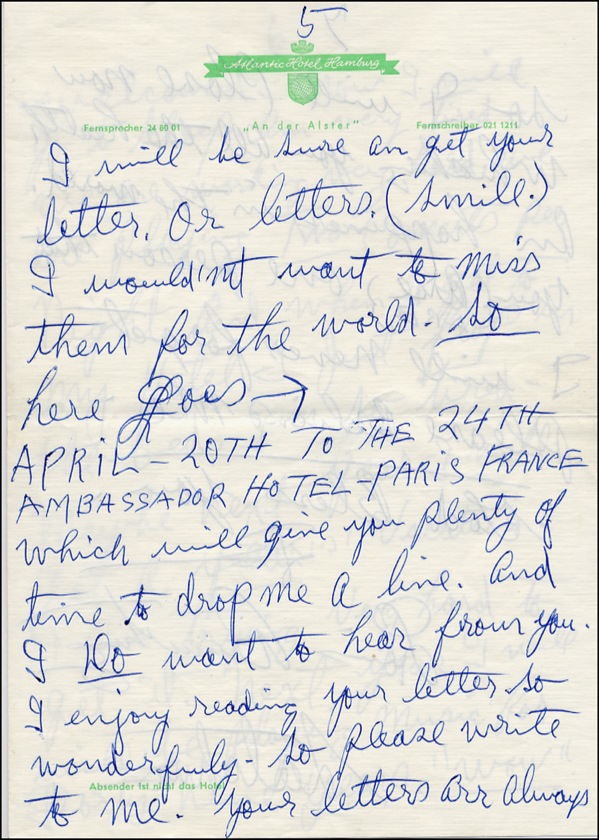 5
Atlantic Hotel Hamburg
Fernsprecher 24 80 01 „An der Alster" Fernschreiber 021 1211
I will be sure an get your
letter. Or letters. (Smill.)
I wouldn'nt want to miss
them for the world. So
here goes →
APRIL - 20TH TO THE 24TH
AMBASSADOR HOTEL - PARIS FRANCE
which will give you plenty of
time to drop me A line. And
I Do want to hear from you.
I enjoy reading your letter so
wonderfuly - So please write
Absender ist nicht das Hotel
to me. Your letters arr Always